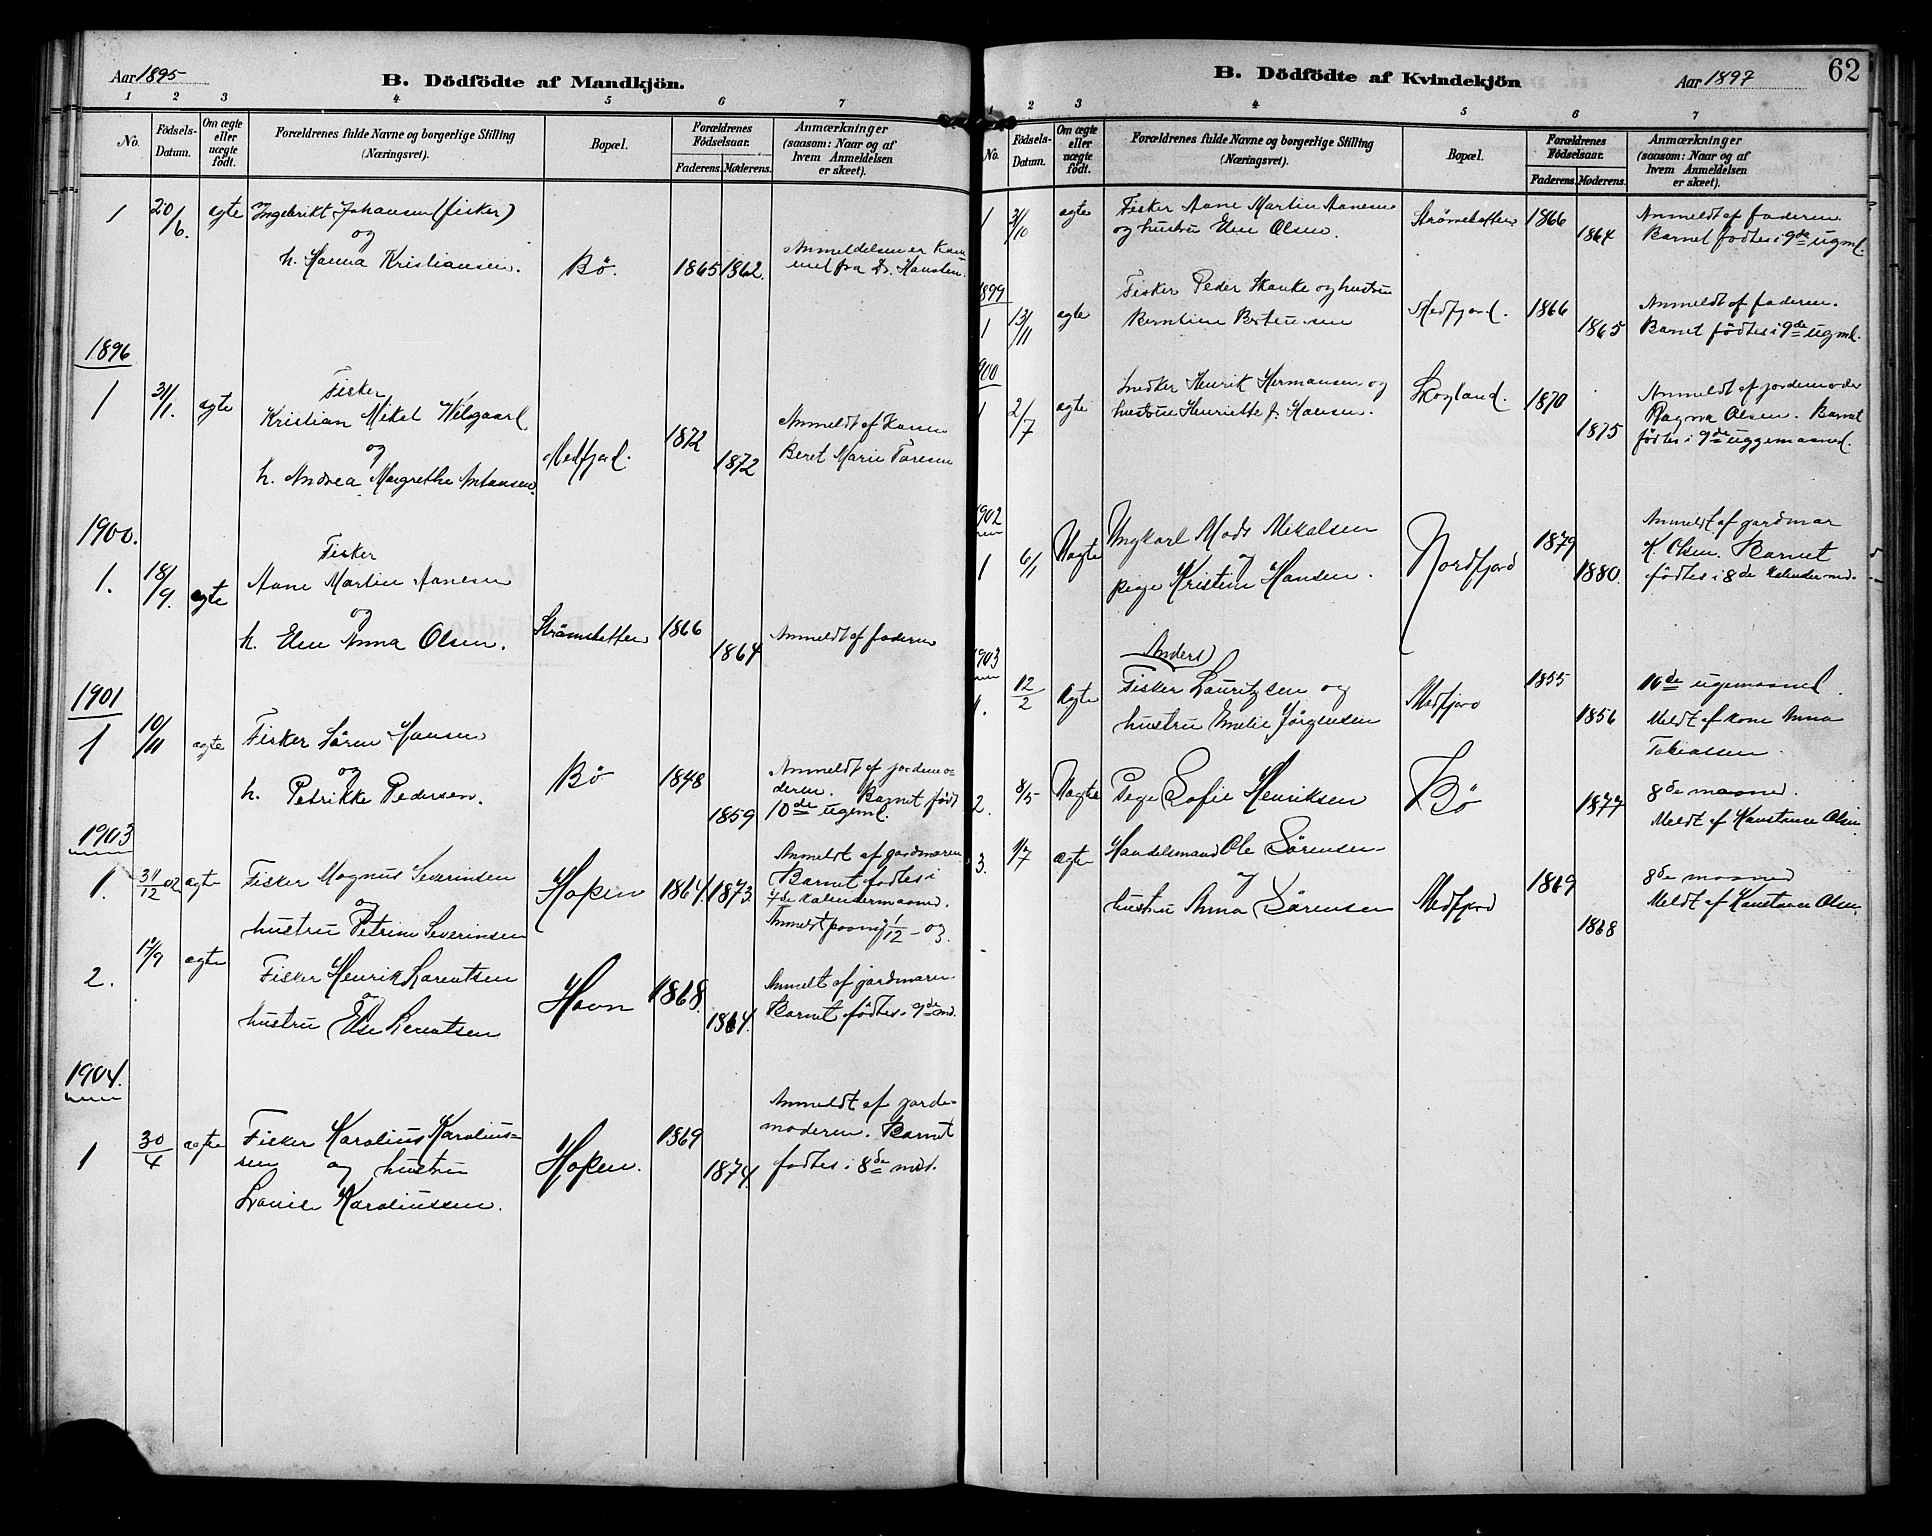 Aar 1895
B. Dödfödte af Mandkjön.
1 2 3 4 5 6 7
No.
Födsels-Datum.
Om ægte eller uægte födt.
Forældrenes fulde Navne og borgerlige Stilling (Næringsvei).
Bopæl.
Forældrenes Födselsaar.
Faderens. Moderens.
Anmærkninger (saasom: Naar og af hvem Anmeldelsen er skeet).
1 20/6. ægte Ingebrikt Johansen (fisker)
og
h. Hanna Kristiansen. Bö. 1865 1862. Anmeldelsen er kom
met fra Dr. Hansten.
1896
1 31/1. ægte Fisker
Kristian Mikal
og
h. Andrea Margrethe Antonsen.
Medfjord. 1872 1872
Anmeldt af Konen
Beret Marie Toresen
1900.
1. 18/9. ægte Fisker
Aane Martin Aanesen
og
h. Elen Anna Olsen. 1866 1864 Anmeldt af faderen
1901
1 10/11 ægte Fisker Sören Hansen
og
h. Petrikke Pedersen.
Bö 1848 1859
Anmeldt af jordemo-
deren. Barnet födt
10de ugeml.
1903
1. 31/12 02 ægte Fisker Magnus Severinsen
og
hustru Petrine Severinsen
Hopen 1864. 1873.
Anmeldt af jordmoren
Barnet födtes i
7de kalendermaaned.
Anmeldt 1/12 - 03.
2. 17/9 ægte Fisker Henrik Lorentsen
og
hustru Else Lorentsen
Havn 1868. 1864.
Anmeldt af jordmoren
Barnet födtes i 9de md.
1904.
1 30/4 ægte Fisker Karolius Karolius-
sen og hustru
Karoliussen.
Hopen. 1869 1874.
Anmeldt af jorde-
moderen. Barnet
födtes i 8de md.
B. Dödfödte af Kvindekjön
Aar 1897
62
1 2 3 4 5 6 7
No.
Födsels-Datum.
Om ægte eller uægte födt.
Forældrenes fulde Navne og borgerlige Stilling (Næringsvei).
Bopæl.
Forældrenes Födselsaar.
Faderens. Moderens.
Anmærkninger (saasom: Naar og af hvem Anmeldelsen er skeet).
1 ægte Fisker Aane Martin Aanesen
og hustru Elen Olsen. 1866 1864
Anmeldt af faderen.
Barnet födtes i 9de ugml.
1899
1 13/11 ægte Fisker Peder Skanke og hustru
Berntine
Medfjord. 1866 1865
Anmeldt af faderen.
Barnet födtes i 9de ugml.
1900
1 2/7 ægte Snedker Henrik Hermansen og
hustru Henriette J. Hansen.
Skogland. 1870 1875
Anmeldt af jordemoder
Ragna Olsen. Barnet
födtes i 9de uggemaaned.
1902
1 6/1 Uægte Ungkarl Mads Mikalsen
og
pige Kristine Hansen.
Nordfjord 1879 1880.
Anmeldt af jordmor
K. Olsen. Barnet
födtes i 8de kalendermd.
1903
1. 12/2 ægte (Anders)
Fisker Lauritzsen og
hustru Emelie Jörgensen
Medfjord 1855 1856
10de ugemaaned.
Meldt af kone Anna
Tobiassen.
2. 8/5 Uægte Pige Sofie Henriksen
Bö 1877
8de maaned.
Meldt af Konstanse Olsen
3. 1/7 ægte Handelsmand Ole Sörensen
og
hustru Anna Sörensen
Medfjord 1869 1868
8de maaned
Meldt af Konstanse Olsen.